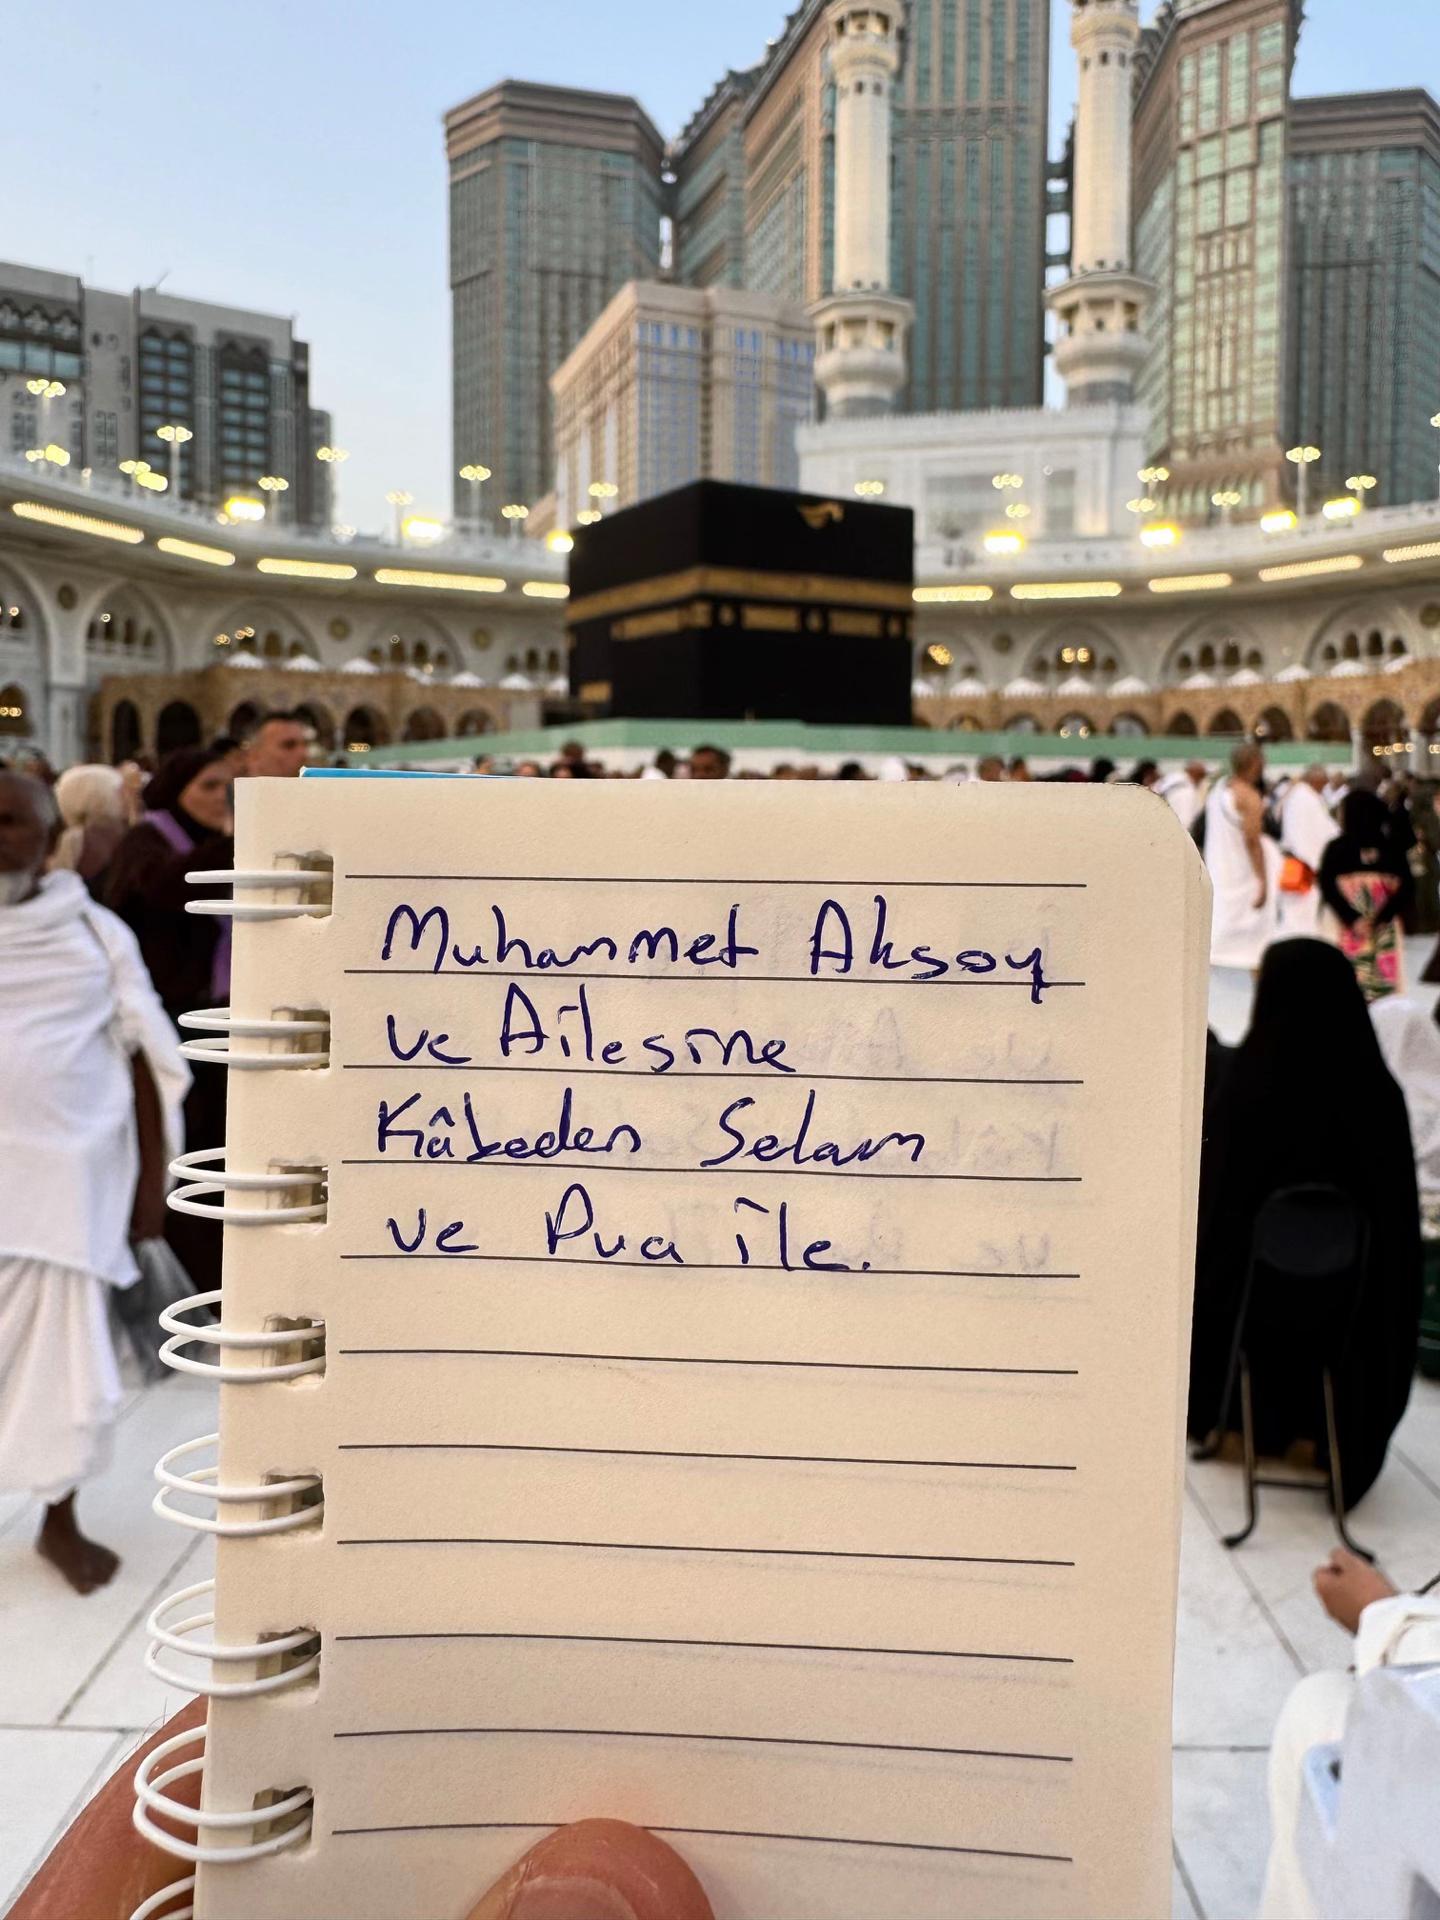 Muhammet Aksoy
ve Ailesine
Kâbeden Selam
ve Dua ile.